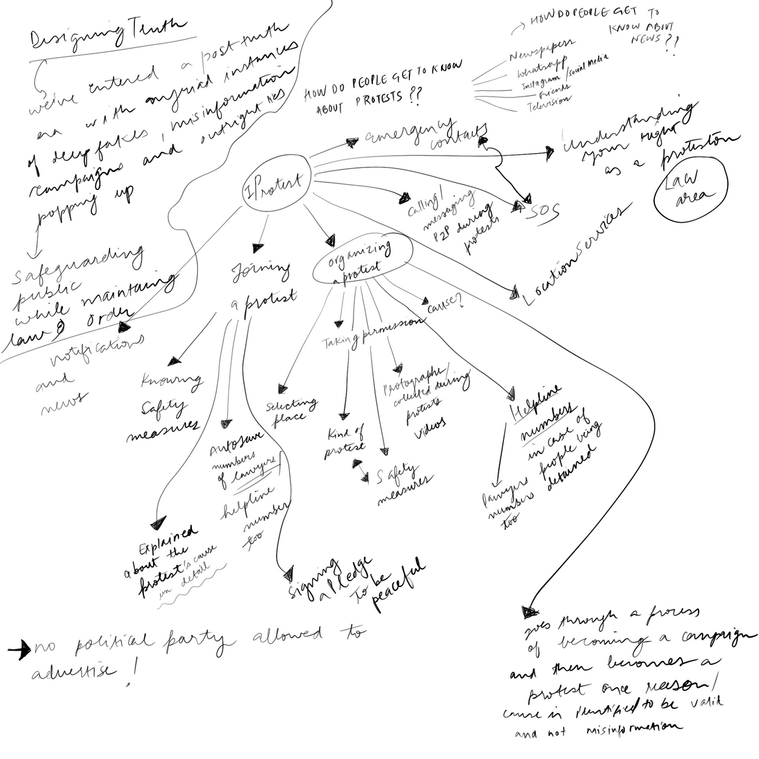 Designing Truth
we've entered a post truth
era with myriad instances
of deep fakes, misinformation
campaigns and outright lies
popping up
Safeguarding
public
while maintaining
law & order
HOW DO PEOPLE GET TO KNOW
ABOUT PROTESTS ??
HOW DO PEOPLE GET TO
KNOW ABOUT
NEWS ??
Newspapers
Whatsapp
Instagram / social media
Friends
Television
IProtest
emergency
contacts
Understanding
your right
as a protestor
Law
area
Calling/
messaging
P2P during
protests
SOS
Location services
notifications
and
news
Joining
a protest
organizing
a protest
Knowing
Safety
measures
Explained
about the
protest's cause
in detail
Autosave
numbers
of lawyers/
helpline
number
too
Signing
a Pledge
to be
peaceful
Selecting
place
Taking permission
Cause?
Kind of
protest
Safety
measures
Photographs/
collected during
protests
videos
Helpline
numbers
in case of
people being
detained
lawyers
number
too
goes through a process
of becoming a campaign
and then becomes a
protest once reason/
cause is identified to be valid
and not misinformation
no political party allowed to
advertise!